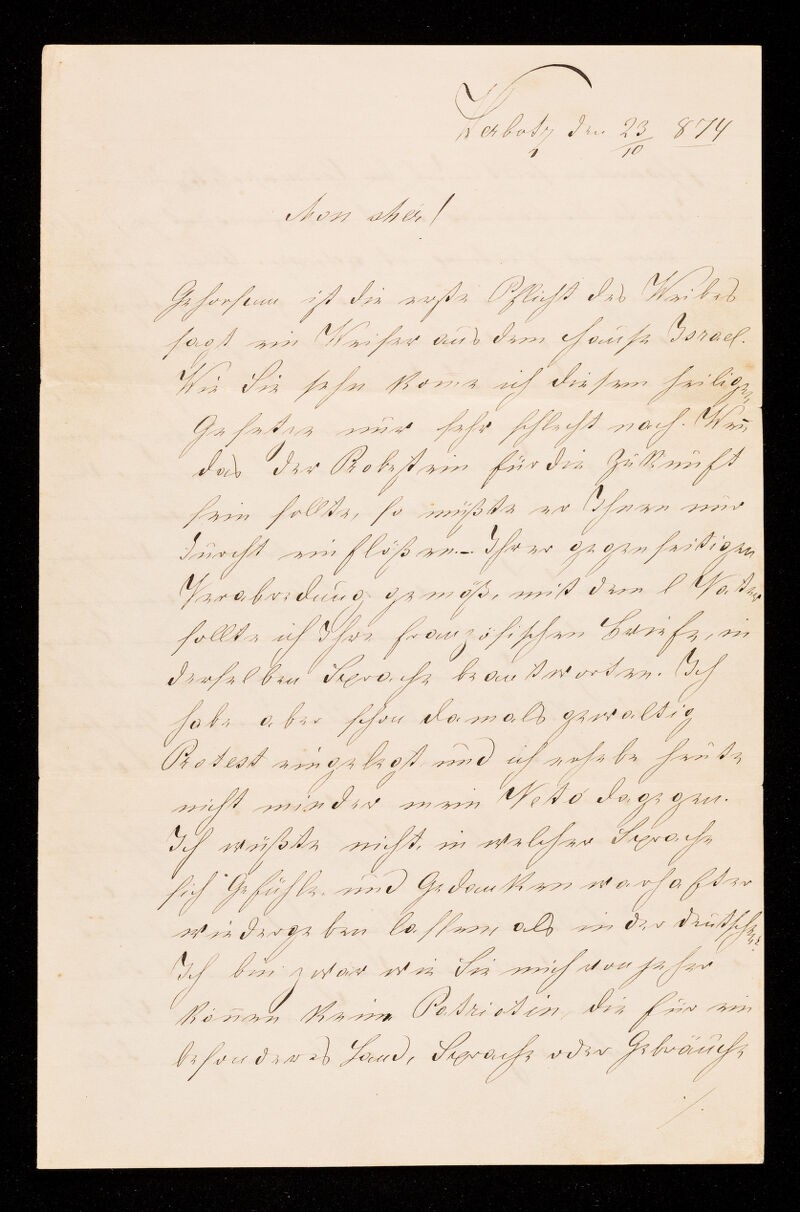 Verbotz den 23/10 874
Mon cher!
Gehorsam ist die erste Pflicht des Weibes
sagt ein Weiser aus dem Hause Israel.
Wie Sie sehn kom̅e ich diesem heiligen
Gesetze nur sehr schlecht nach. Wen̅
das der Probestein für die Zukunft
sein sollte, so müßte er Ihnen nur
Furcht einflößen. – Ihrer gegenseitigen
Verabredung gemäß, mit dem l Vater
sollte ich Ihre französischen Briefe, in
derselben Sprache beantworten. Ich
habe aber schon damals gewaltig
Protest eingelegt und ich erhebe heute
nicht minder mein Veto dagegen.
Ich wüßte nicht, in welcher Sprache
sich Gefühle und Gedanken warhafter
wiedergeben lassen, als in der deutschen.
Ich bin zwar wie Sie mich von jeher
kön̅en keine Patriotin, die für ein
besonderes Land, Sprache oder Gebräuche
./.